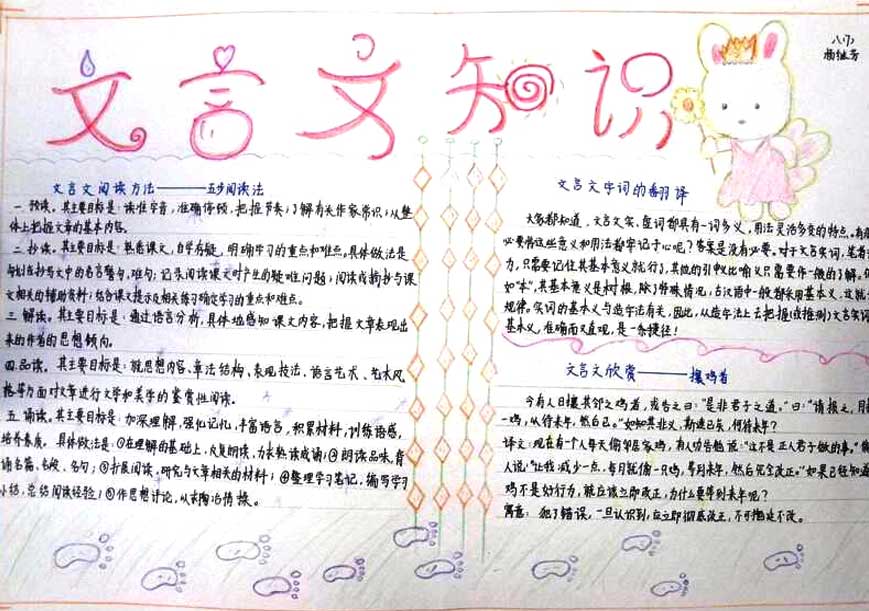 文言文知识
八(7)
文言文阅读方法———五步阅读法
一 预读。其主要目标是:读准字音,准确停顿,把握节奏;了解有关作家常识;从整
体上把握文章的基本内容。
二 抄读。其主要目标是:熟悉课文,自学存疑,明确学习的重点和难点。具体做法是
勾划抄写文中的名言警句,难句;记录阅读课文时产生的疑难问题;阅读或摘抄与课
文相关的辅助资料;结合课文提示及相关练习确定学习的重点和难点。
三 解读。其主要目标是:通过语言分析,具体地感知课文内容,把握文章表现出
来的作者的思想倾向。
四.品读。其主要目标是:就思想内容、章法结构、表现技法、语言艺术、艺术风
格等方面对文章进行文学和美学的鉴赏性阅读。
五 诵读。其主要目标是:加深理解,强化记忆,丰富语言,积累材料,训练语感,
培养素质。具体做法是:①在理解的基础上,反复朗读,力求熟读成诵;②朗读品味,背
诵名篇、名段、名句;③扩展阅读,研究与文章相关的材料;④整理学习笔记,编写学习
小结,总结阅读经验;⑤作思想讨论,从而陶冶情操。
文言文字词的翻译
大家都知道,文言文实、虚词都具有一词多义,用法灵活多变的特点。有
必要将这些意义和用法都牢记于心呢?答案是没有必要。对于文言实词,笔者
力,只需要记住其基本意义就行了,其他的引申义比喻义只需要作一般的了解。
如“本”,其基本意义是树根,除了特殊情况,古汉语中一般都采用基本义,这就
规律。实词的基本义与造字法有关,因此,从造字法上去把握(或推测)文言实词
基本义,准确而又直观,是一条捷径!
文言文欣赏———攘鸡者
今有人日攘其邻之鸡者,或告之曰:“是非君子之道。”曰:“请损之,月
一鸡,以待来年,然后已。”如知其非义,斯速已矣,何待来年?
译文:现在有一个人每天偷邻居家鸡,有人劝告他说:“这不是正人君子做的事。”
人说:“让我减少一点,每月就偷一只鸡,等到来年,然后完全改正。”如果已经知道
鸡不是好行为,就应该立即改正,为什么要等到来年呢?
寓意:犯了错误,一旦认识到,应立即彻底改正,不可拖延不改。